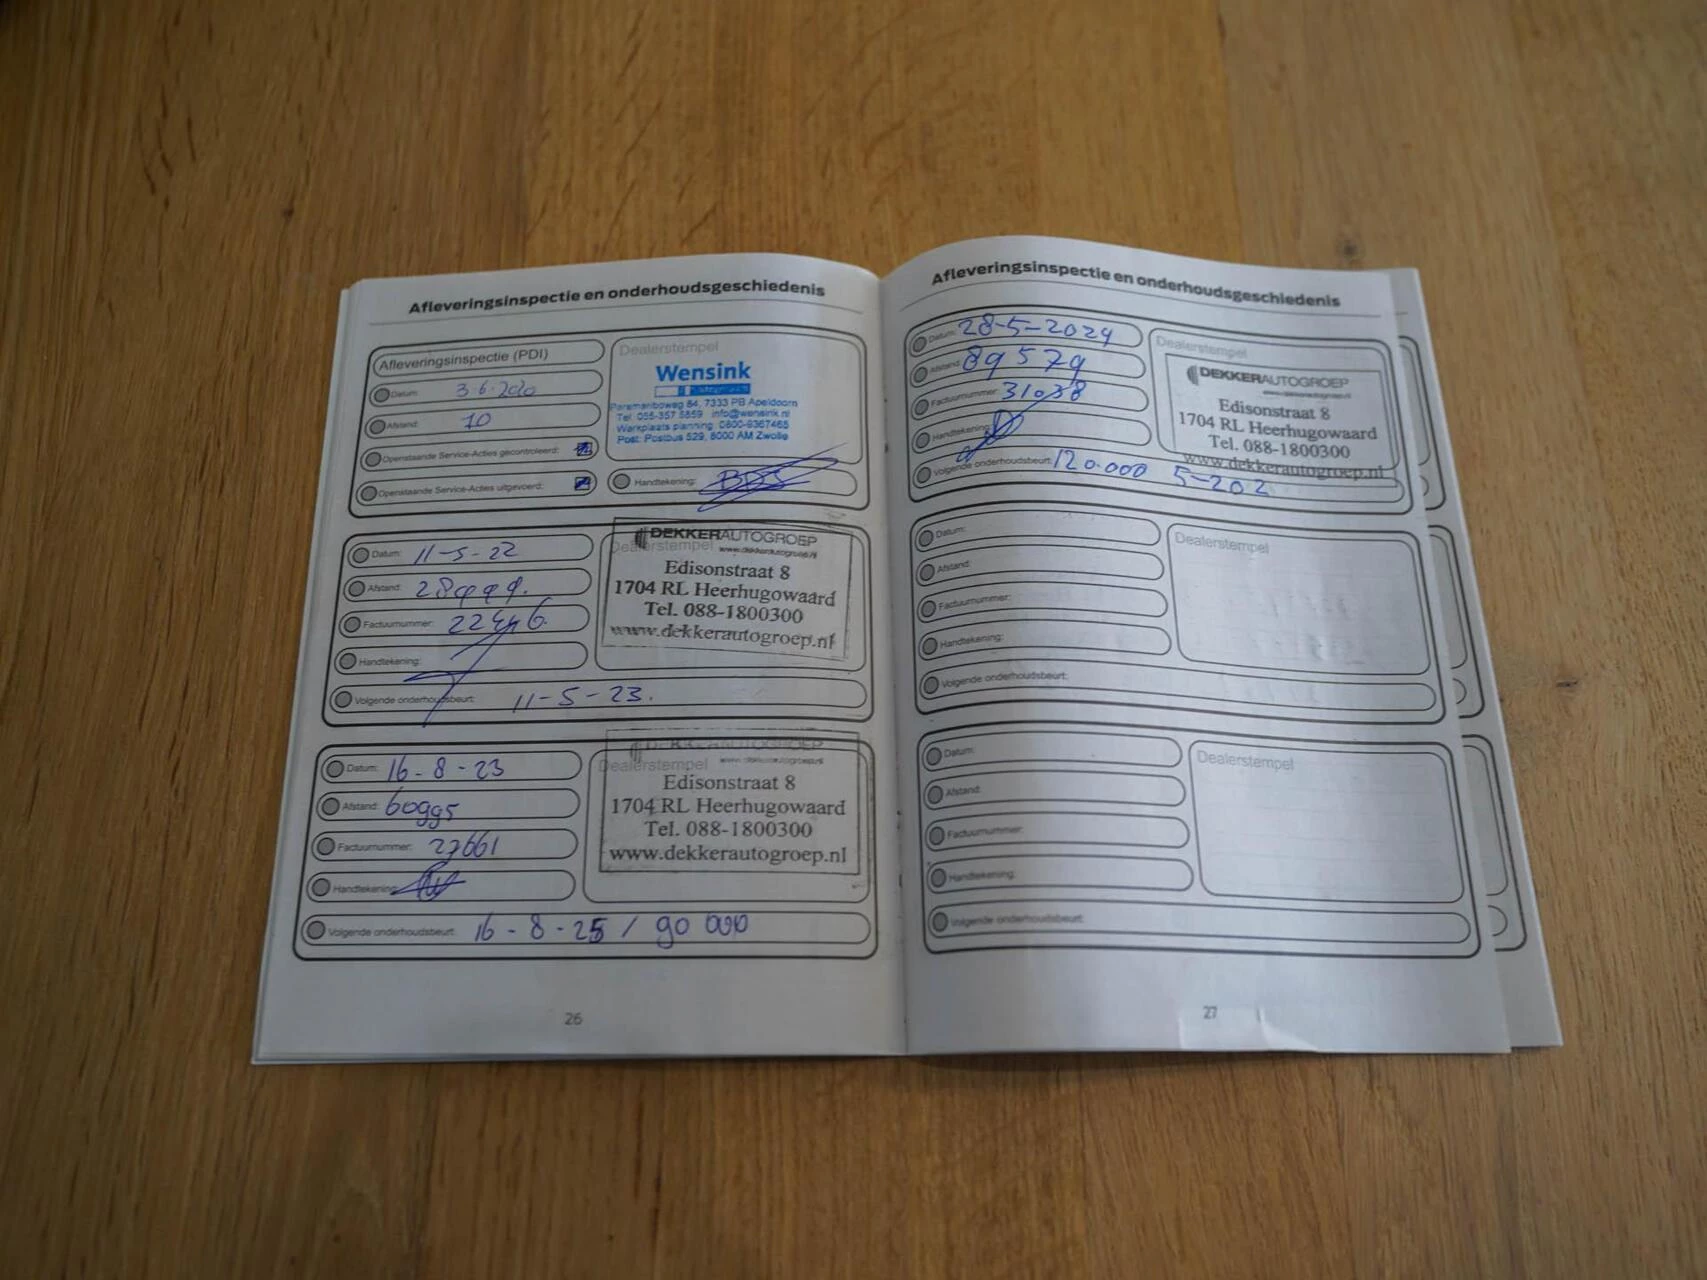 Afleveringsinspectie en onderhoudsgeschiedenis
Afleveringsinspectie (PDI)
Datum: 3-6-2020
Afstand: 10
Openstaande Service-Acties gecontroleerd:
Openstaande Service-Acties uitgevoerd:
Dealerstempel
Wensink
7333 PB Apeldoorn
Tel. 055-357 5859 info@wensink.nl
Werkplaats planning: 0800-9367465
Post: Postbus 529, 8000 AM Zwolle
Handtekening:
Datum: 11-5-22
Afstand: 28999.
Factuurnummer:
Handtekening:
Volgende onderhoudsbeurt: 11-5-23.
Dealerstempel
DEKKERAUTOGROEP
www.dekkerautogroep.nl
Edisonstraat 8
1704 RL Heerhugowaard
Tel. 088-1800300
www.dekkerautogroep.nl
Datum: 16-8-23
Afstand: 60995
Factuurnummer: 27661
Handtekening:
Volgende onderhoudsbeurt: 16-8-25 / 90 000
Dealerstempel
DEKKERAUTOGROEP
www.dekkerautogroep.nl
Edisonstraat 8
1704 RL Heerhugowaard
Tel. 088-1800300
www.dekkerautogroep.nl
26
Afleveringsinspectie en onderhoudsgeschiedenis
Datum: 28-5-2024
Afstand: 89579
Factuurnummer: 31038
Handtekening:
Volgende onderhoudsbeurt: 120.000 5-202
Dealerstempel
DEKKERAUTOGROEP
Edisonstraat 8
1704 RL Heerhugowaard
Tel. 088-1800300
www.dekkerautogroep.nl
Datum:
Afstand:
Factuurnummer:
Handtekening:
Volgende onderhoudsbeurt:
Dealerstempel
Datum:
Afstand:
Factuurnummer:
Handtekening:
Volgende onderhoudsbeurt:
Dealerstempel
27